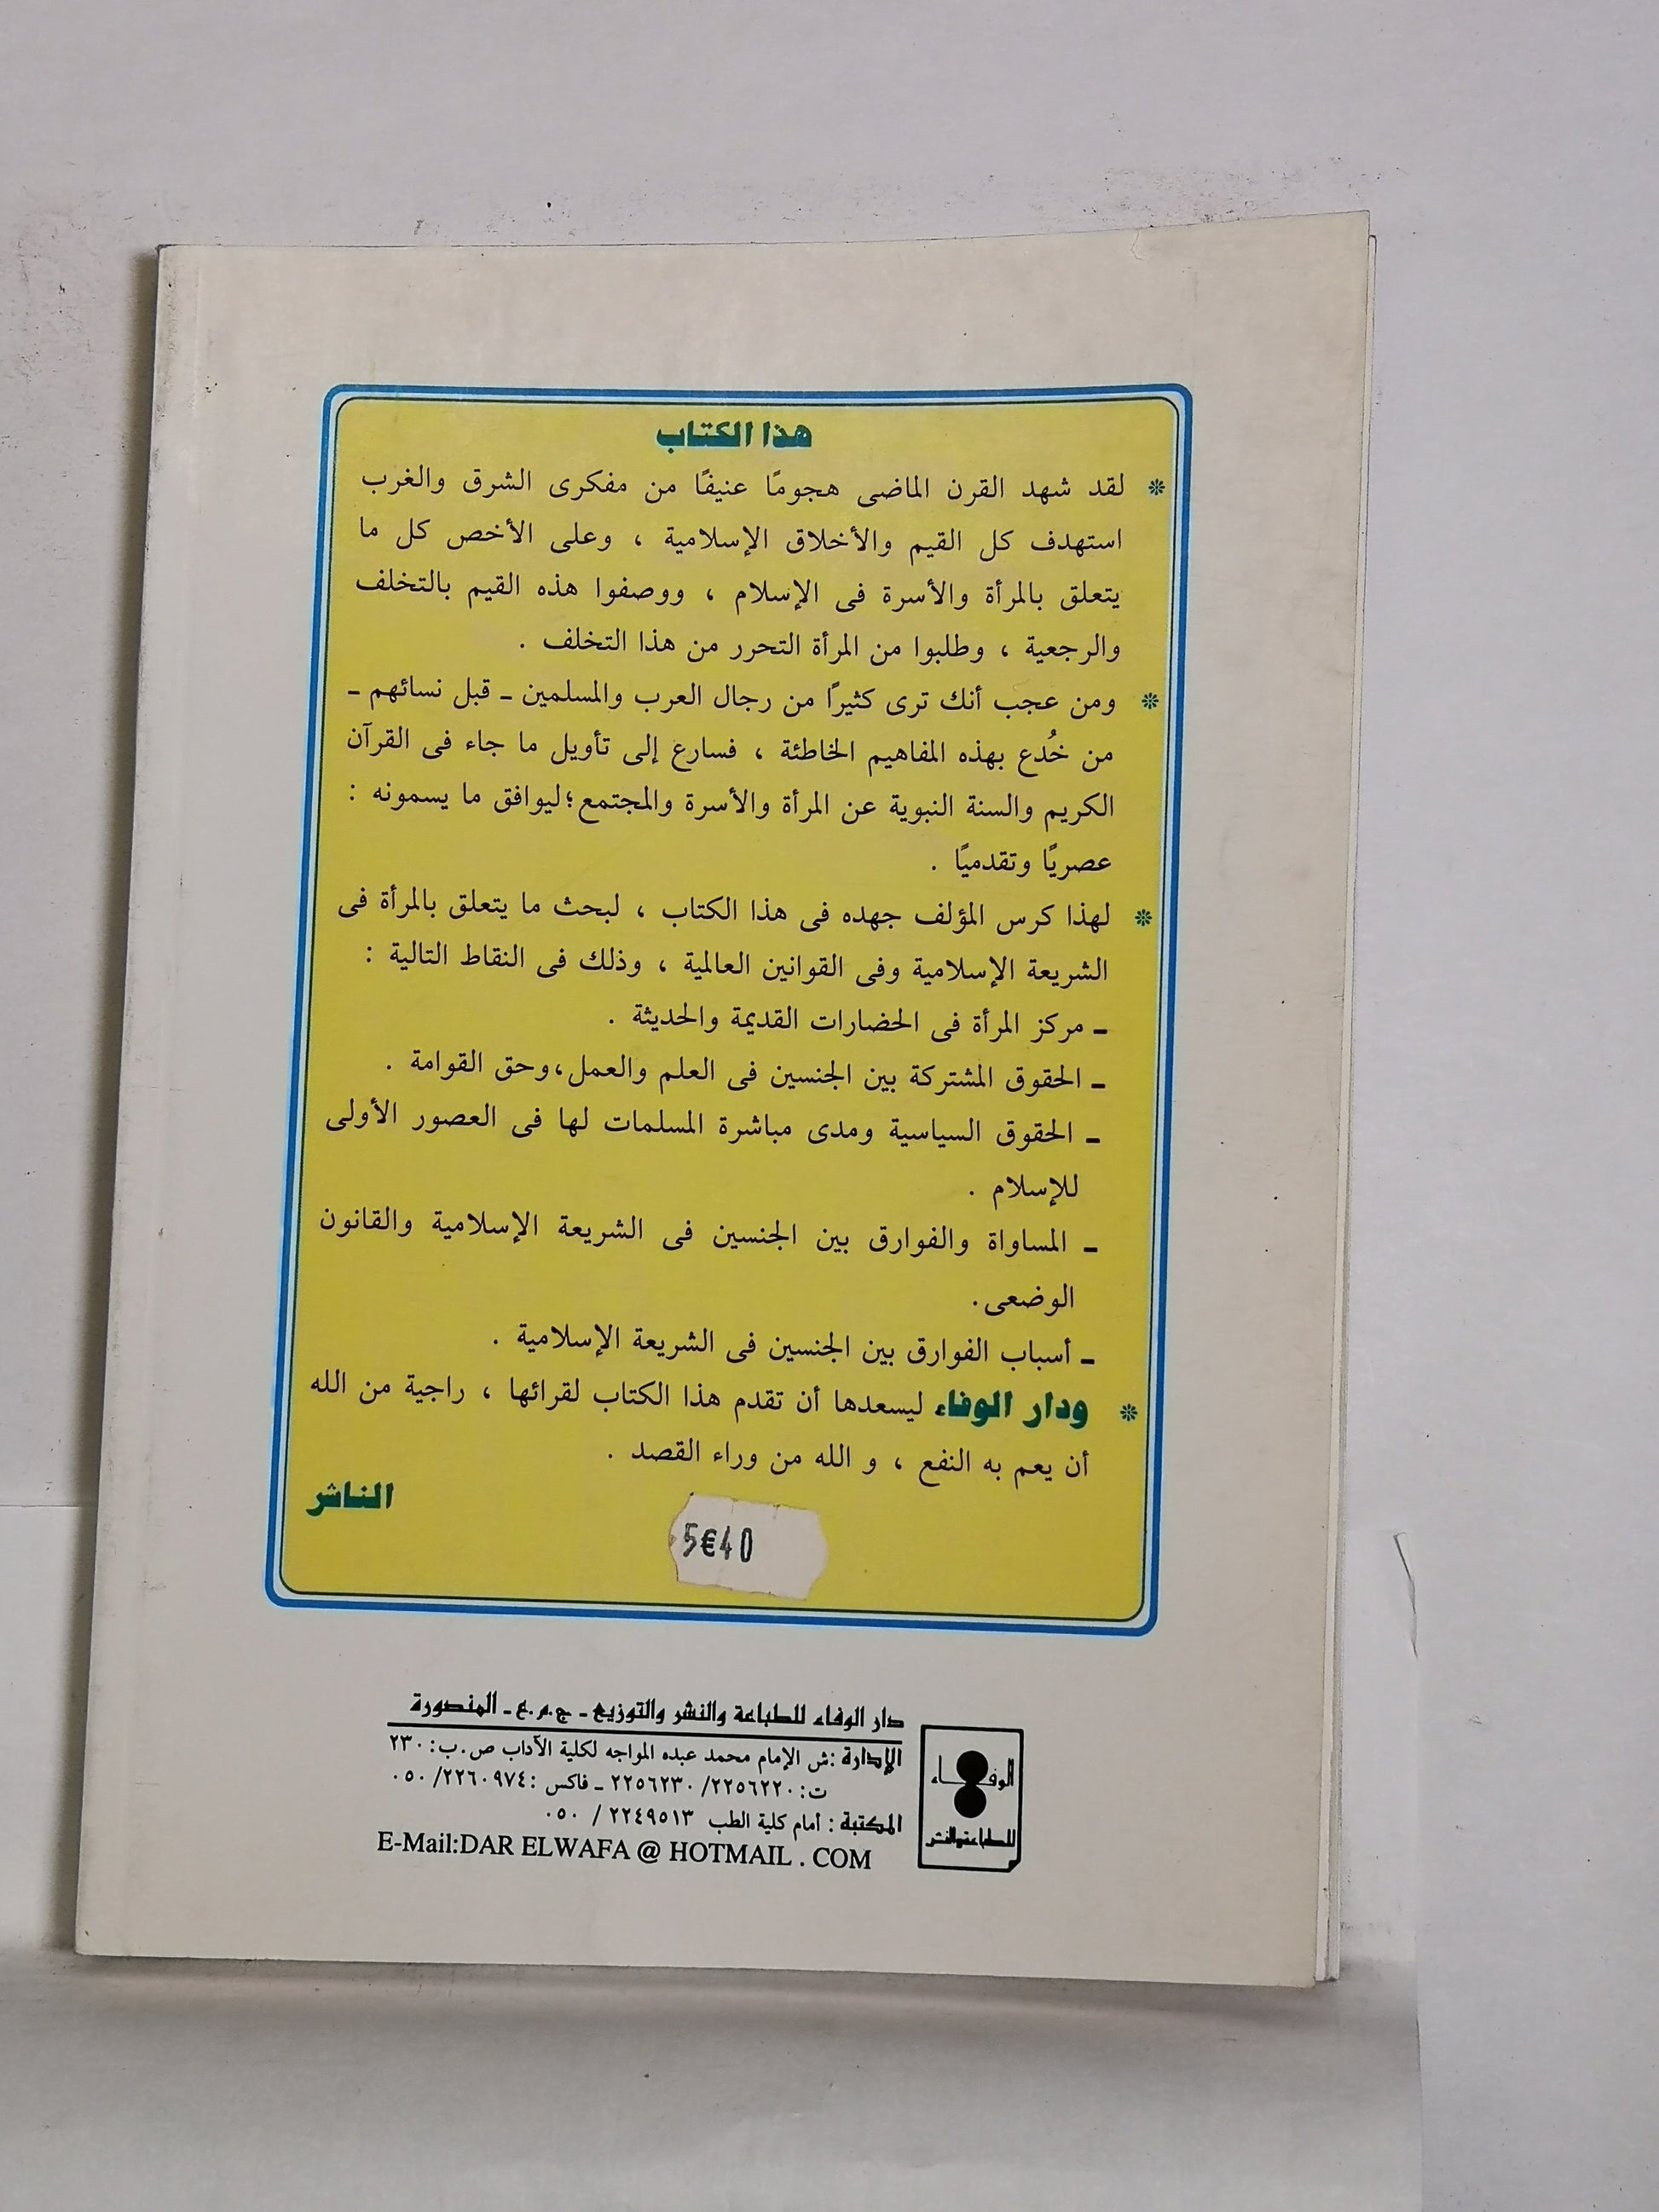 هذا الكتاب
* لقد شهد القرن الماضى هجومًا عنيفًا من مفكرى الشرق والغرب
استهدف كل القيم والأخلاق الإسلامية ، وعلى الأخص كل ما
يتعلق بالمرأة والأسرة فى الإسلام ، ووصفوا هذه القيم بالتخلف
والرجعية ، وطلبوا من المرأة التحرر من هذا التخلف .
* ومن عجب أنك ترى كثيرًا من رجال العرب والمسلمين ـ قبل نسائهم ـ
من خُدع بهذه المفاهيم الخاطئة ، فسارع إلى تأويل ما جاء فى القرآن
الكريم والسنة النبوية عن المرأة والأسرة والمجتمع؛ليوافق ما يسمونه :
عصريًا وتقدميًا .
* لهذا كرس المؤلف جهده فى هذا الكتاب ، لبحث ما يتعلق بالمرأة فى
الشريعة الإسلامية وفى القوانين العالمية ، وذلك فى النقاط التالية :
ـ مركز المرأة فى الحضارات القديمة والحديثة .
ـ الحقوق المشتركة بين الجنسين فى العلم والعمل،وحق القوامة .
ـ الحقوق السياسية ومدى مباشرة المسلمات لها فى العصور الأولى
للإسلام .
ـ المساواة والفوارق بين الجنسين فى الشريعة الإسلامية والقانون
الوضعى.
ـ أسباب الفوارق بين الجنسين فى الشريعة الإسلامية .
* ودار الوفاء ليسعدها أن تقدم هذا الكتاب لقرائها ، راجية من الله
أن يعم به النفع ، و الله من وراء القصد .
الناشر
5€40
دار الوفاء للطباعة والنشر والتوزيع ـ ج.م.ع ـ المنصورة
الإدارة :ش الإمام محمد عبده المواجه لكلية الآداب ص.ب: ٢٣٠
ت: ٢٢٥٦٢٢٠/ ٢٢٥٦٢٣٠ ـ فاكس :٢٢٦٠٩٧٤/ ٠٥٠
المكتبة : أمام كلية الطب ٢٢٤٩٥١٣ / ٠٥٠
E-Mail:DAR ELWAFA @ HOTMAIL . COM
الوفاء
للطباعة والنشر